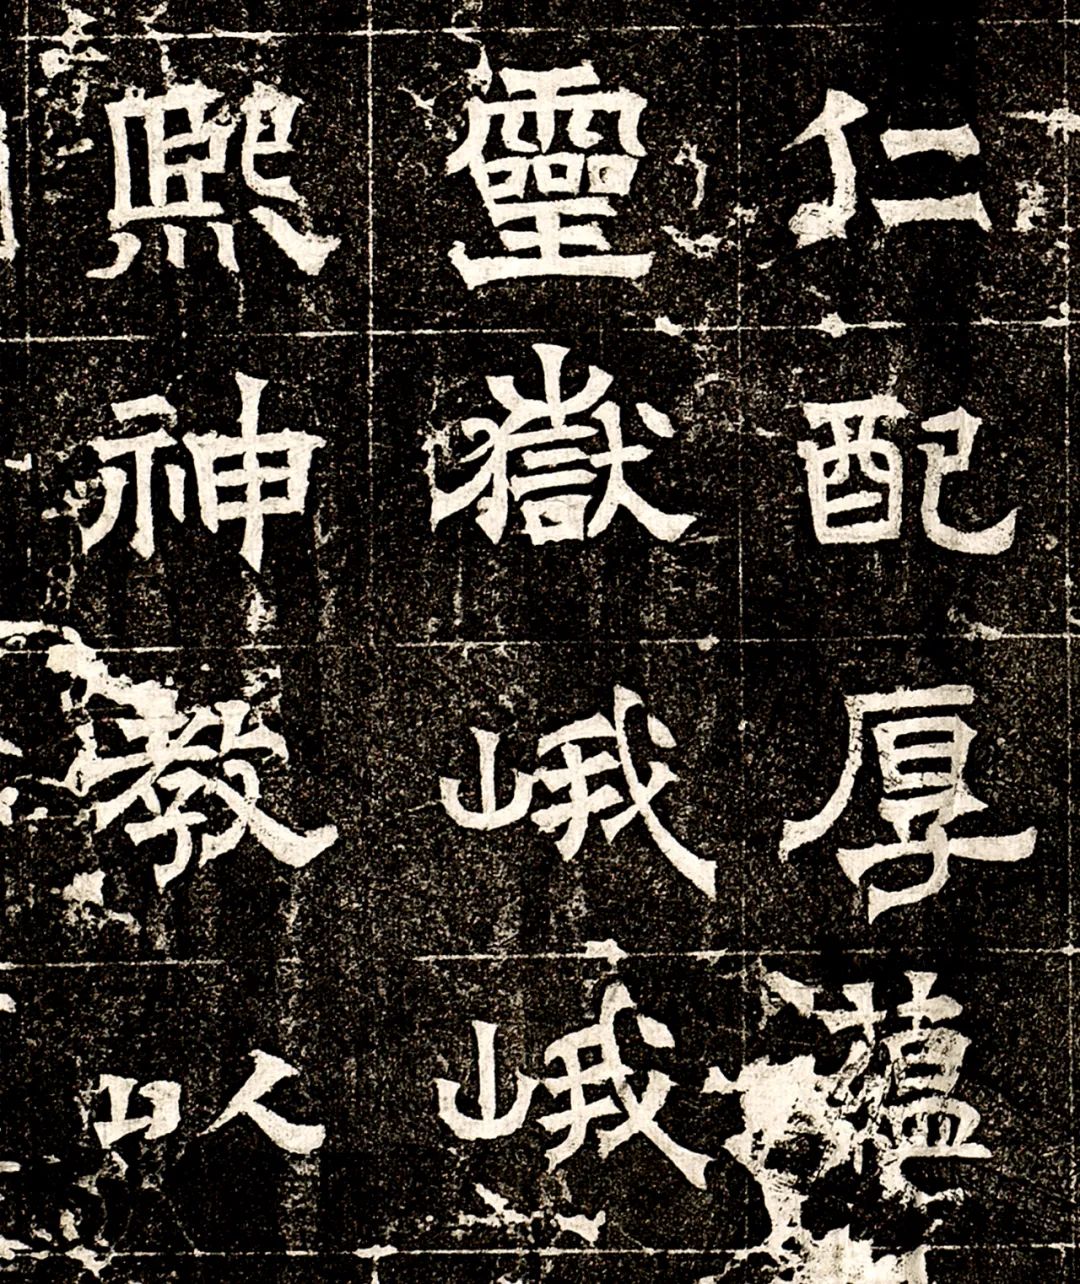 仁配厚
靈嶽峨峨
熙神教以